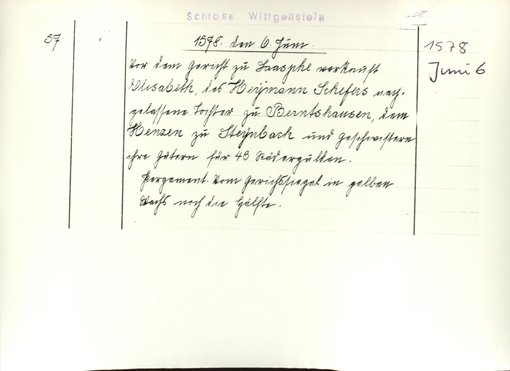 Schloss Wittgenstein
57
1578. den 6. Juni.
1578
Juni 6
Vor dem Gericht zu Laasphe verkauft
Elisabeth, des Heymann Schefers nach-
gelassene Tochter zu Berntshausen, dem
Henzen zu Steynbach und Geschwistern
ihre Gütern für 43 Rädergulden.
Pergament. Vom Gerichtssiegel in gelben
Wachs noch die Hälfte.